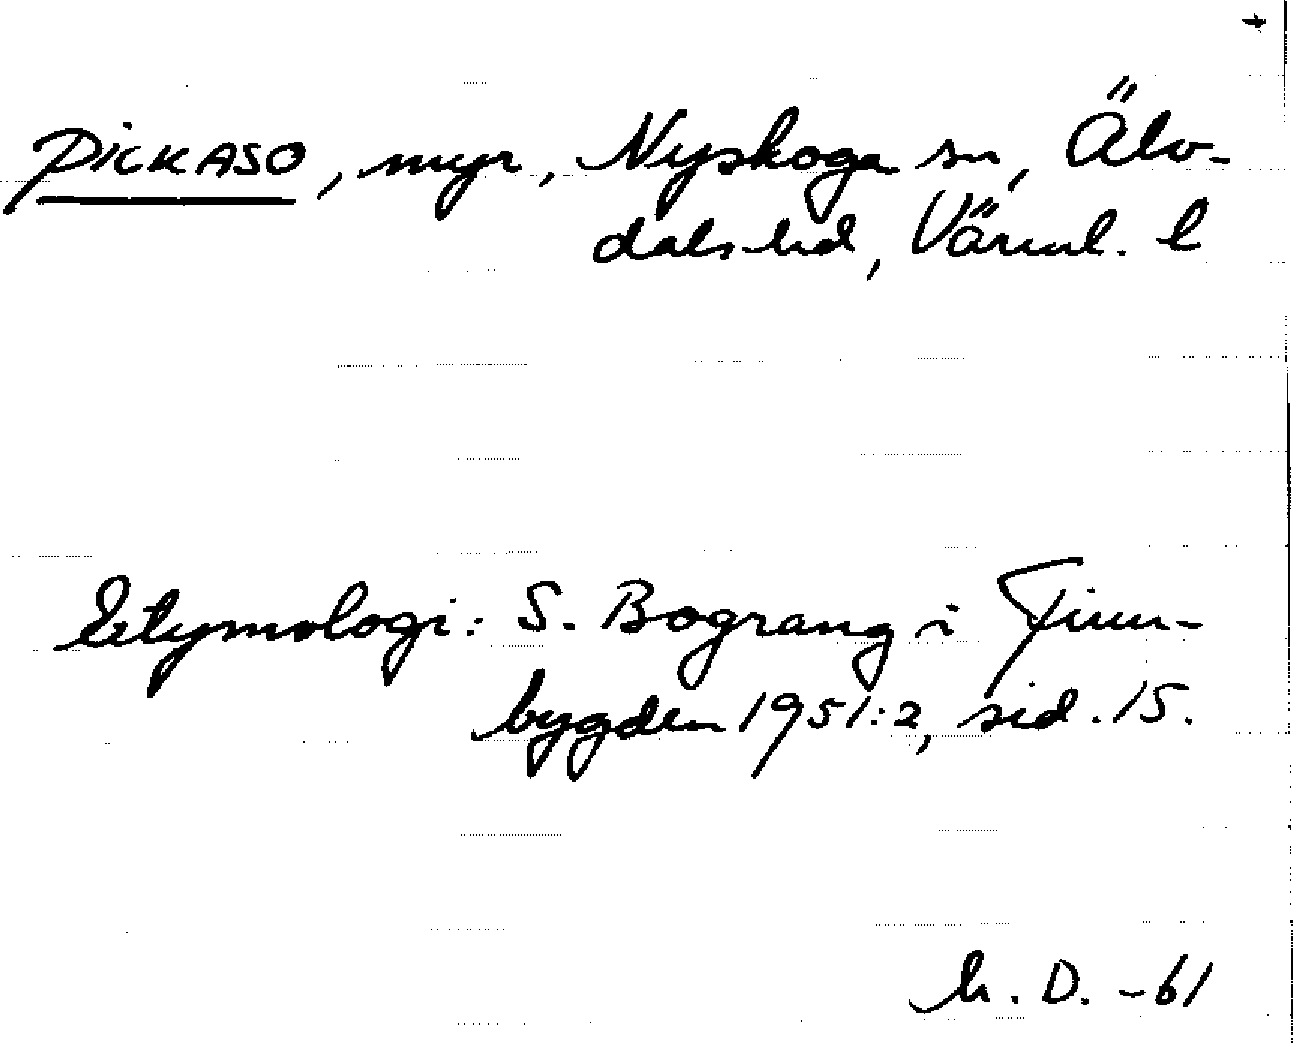 PICKASO, myr, Nyskoga sn, Älv-
dals hd, Värml. l
Etymologi: S. Bograng i Finn-
bygden 1951:2, sid. 15.
h. D. -61